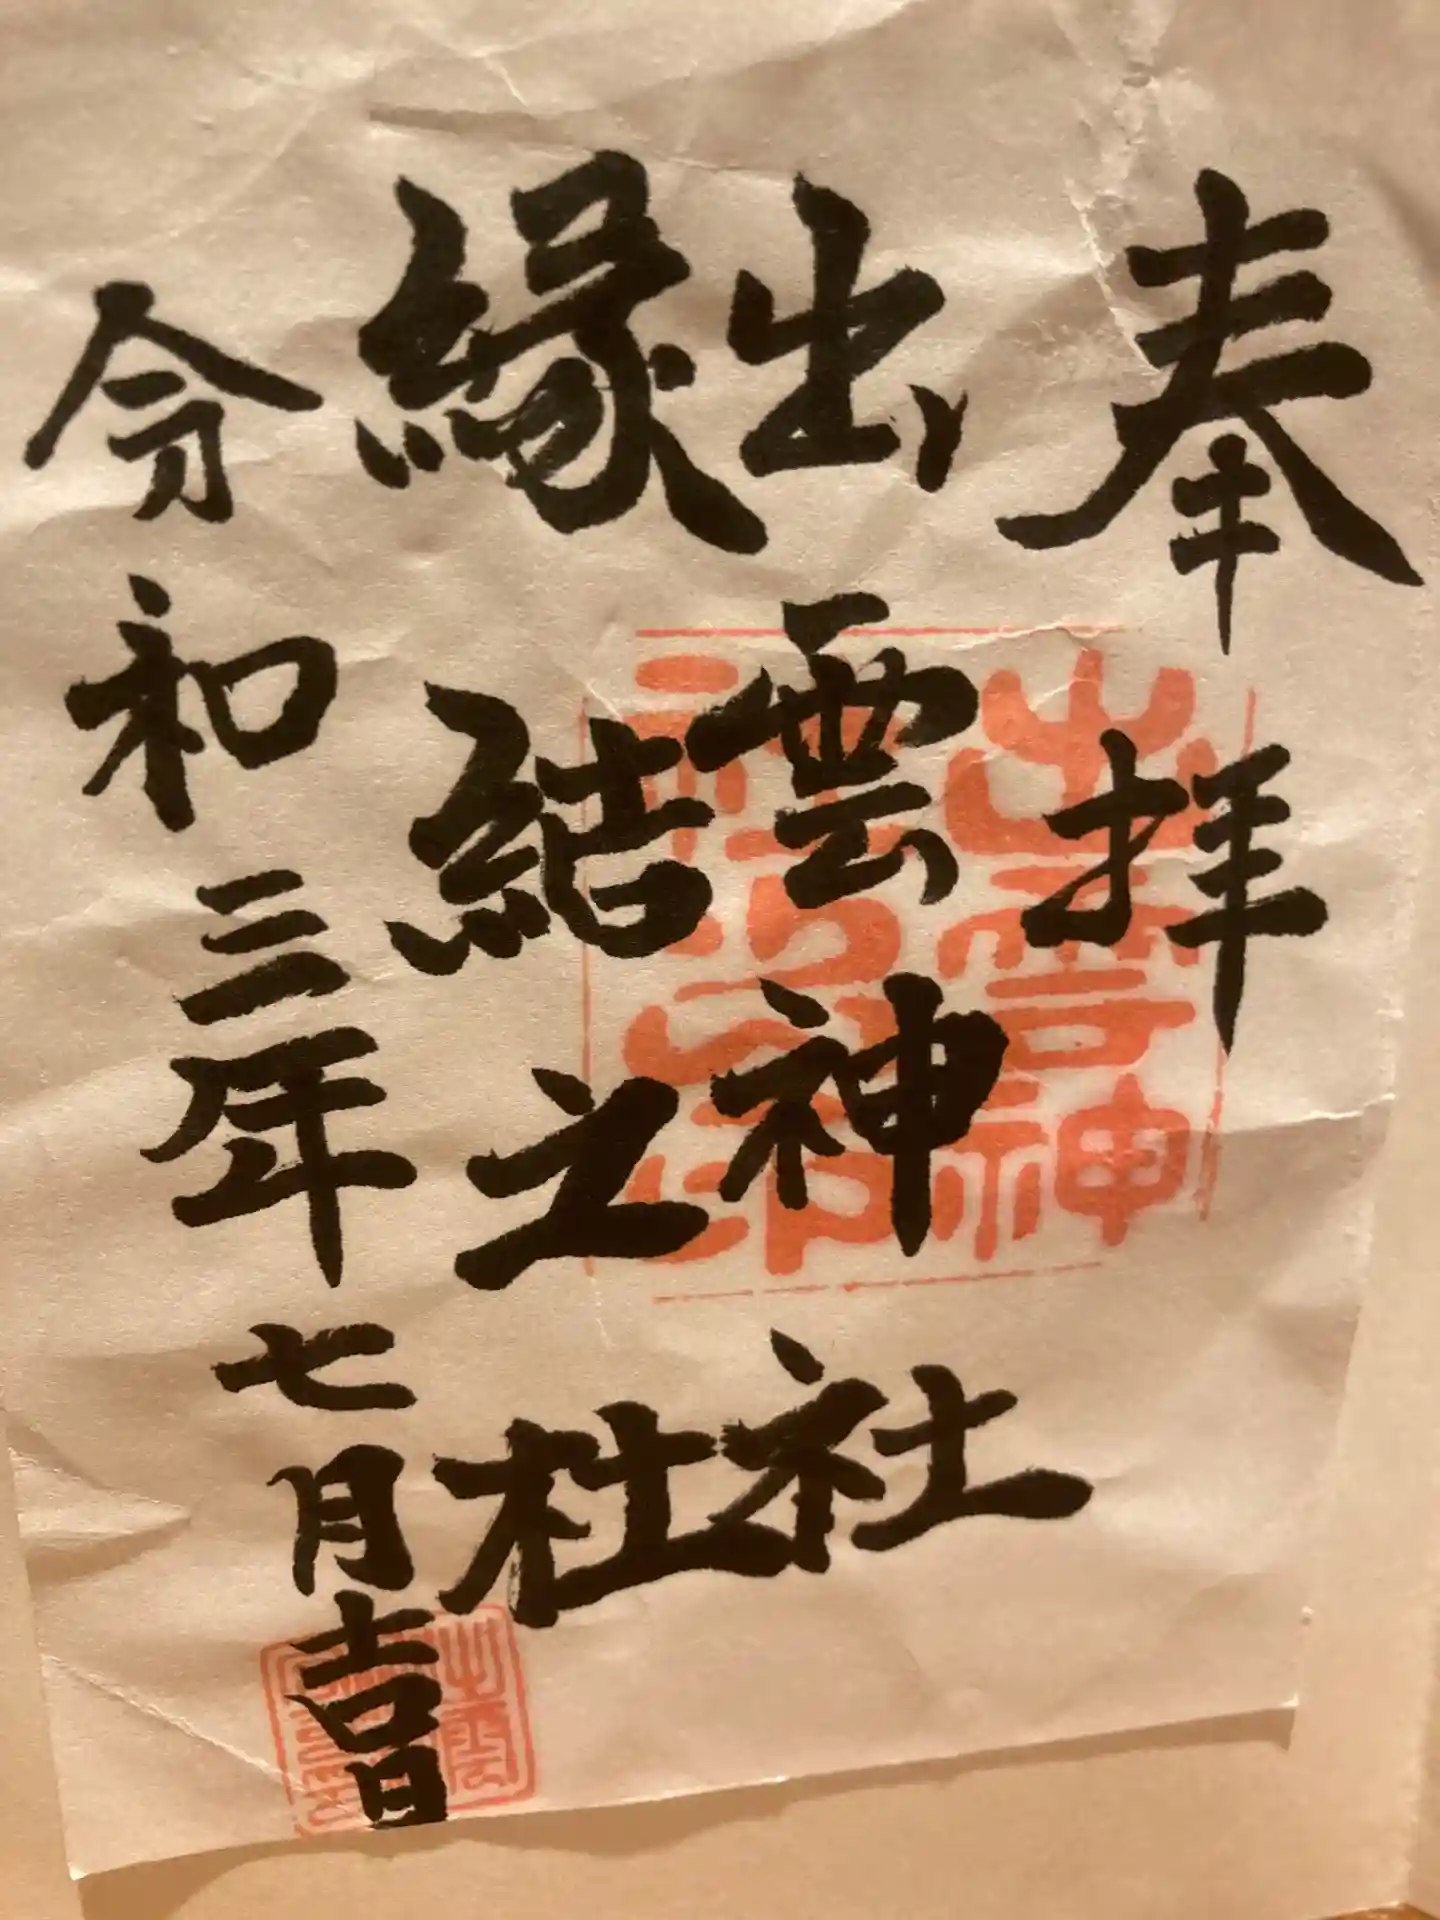 奉拝
出雲神社
縁結之杜
令和三年七月吉日
出雲神